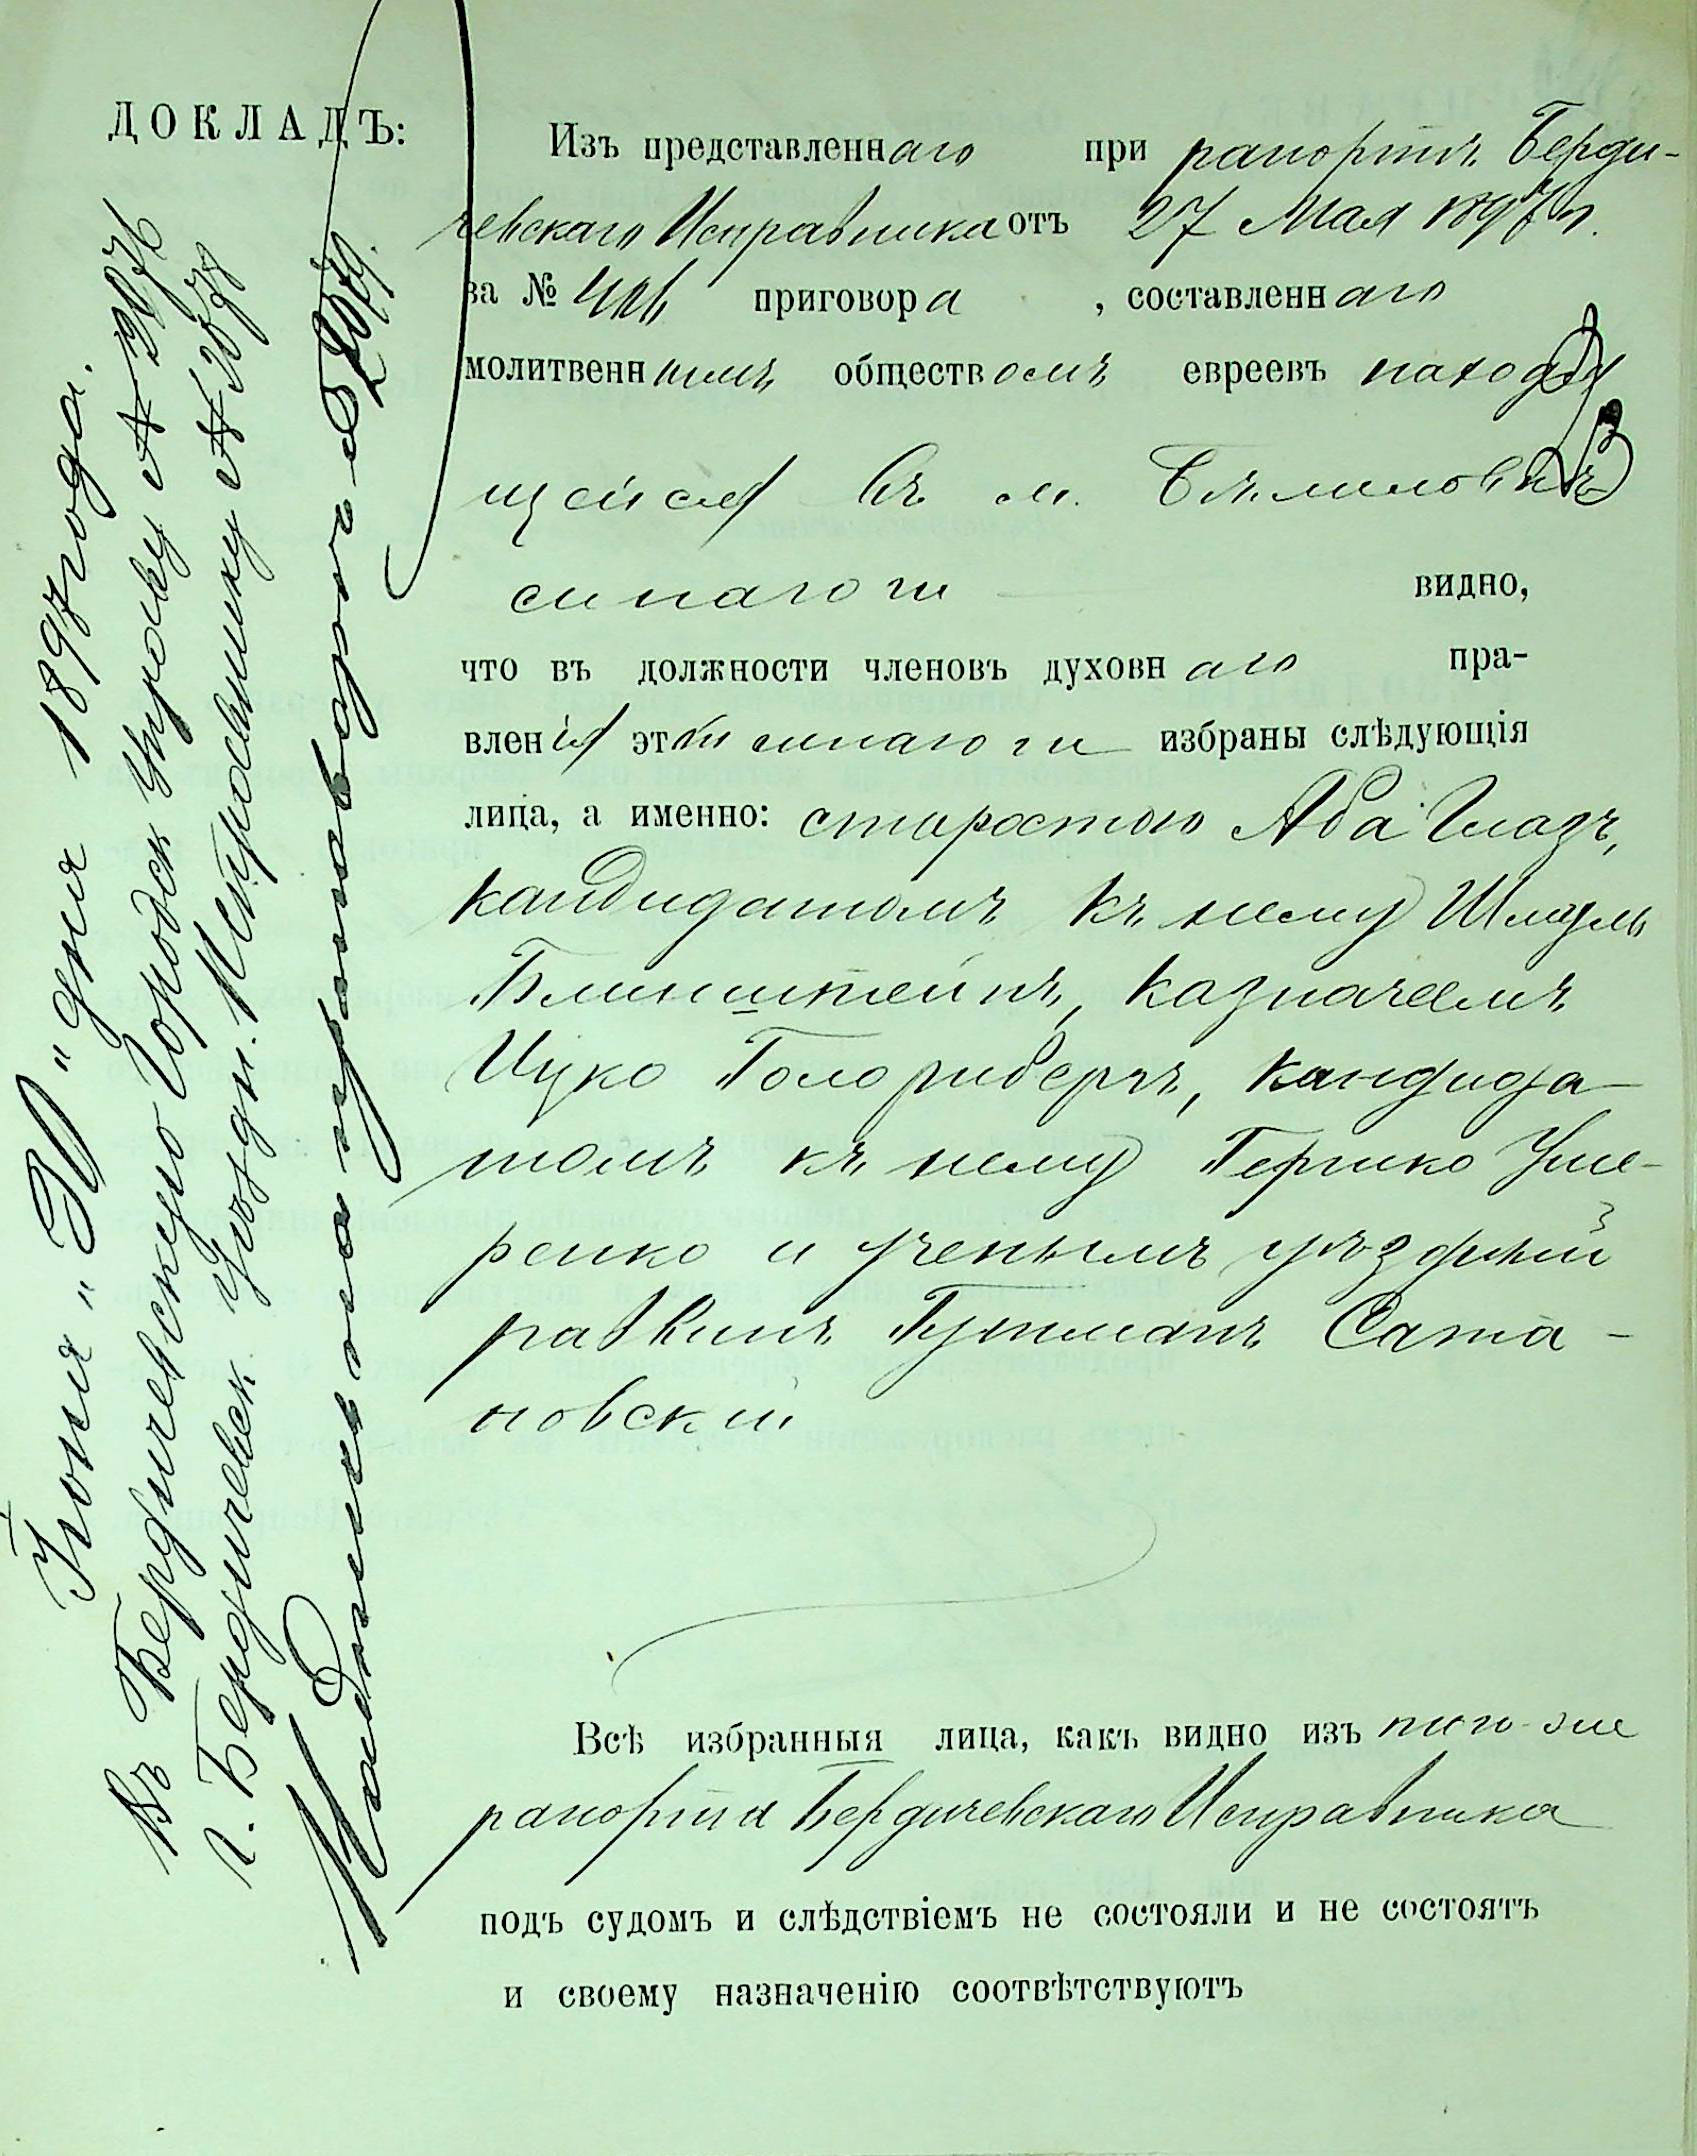 ДОКЛАДЪ:
Изъ представленнаго при рапортѣ Берди-
чевскаго Исправника отъ 27 Мая 1897 г.
за № приговора , составленнаго
молитвеннымъ обществомъ евреевъ находя
щейся въ м. Бѣлиловкѣ
синагоги видно,
что въ должности членовъ духовнаго пра-
вленія этой синагоги избраны слѣдующія
лица, а именно: старостою Аба Глазъ,
кандидатомъ къ нему Шмуль
Блинштейнъ, казначеемъ
Ицко Гологиберъ, кандида
томъ къ нему Гершко Уше-
ренко и ученымъ уѣздный
раввинъ Гутманъ Сата-
новскій
Всѣ избранныя лица, какъ видно изъ того-же
рапорта Бердичевскаго Исправника
подъ судомъ и слѣдствіемъ не состояли и не состоятъ
и своему назначенію соотвѣтствуютъ
Іюня "30" дня 1897 года.
Въ Бердичевскую Городск Управу №
г. Бердичевск уѣздн. Исправнику №